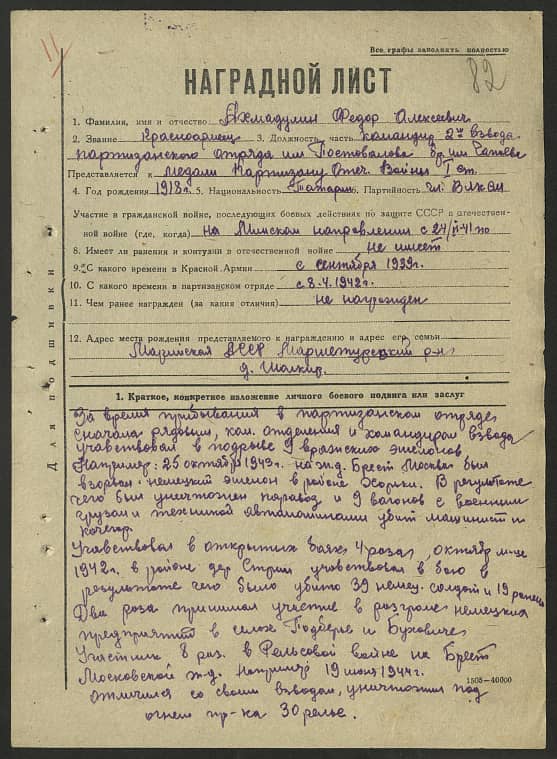 11
82
Все графы заполнять полностью
НАГРАДНОЙ ЛИСТ
1. Фамилия, имя и отчество Ахмадулин Федор Алексеевич
2. Звание Красноармеец 3. Должность, часть командир 2го взвода
партизанского отряда им. Постовалова бр. им. Чапаева
Представляется к медали Партизану Отеч. Войны I ст.
4. Год рождения 1918г. 5. Национальность Татарин 6. Партийность чл. ВЛКСМ
Участие в гражданской войне, последующих боевых действиях по защите СССР в отечествен-
ной войне (где, когда) на Минском направлении с 24/
8. Имеет ли ранения и контузии в отечественной войне не имеет
9. С какого времени в Красной Армии с сентября 1939г.
10. С какого времени в партизанском отряде с 8.4.1942г.
11. Чем ранее награжден (за какие отличия) не награжден
12. Адрес места рождения представляемого к награждению и адрес его семьи
Марийская АССР р-н
д.
Для подшивки
1. Краткое, конкретное изложение личного боевого подвига или заслуг
За время пребывания в партизанском отряде
сначала рядовым, ком. отделения и командиром взвода
учавствовал в подрыве 9 вражских эшелонов
Например: 25 октября 1943г. на ж.д. Брест Москва был
взорван немецкий эшелон в районе . В результате
чего был уничтожен паравоз и 9 вагонов с военним
грузам и техникой убит машинист и
кочегар.
Учавствовал в открытых баях 4 роза, октябр м-це
1942г. в районе дер. учавствовал в бою в
результате чего было убито 39 немец. солдат и 19 ранено
Два роза принимал участие в розгроме немецких
предприятий в селах и
Участник 8 раз. в Рельсовой войне на Брест
Московской ж.д. Например 19 июня 1944г.
отличился со своим взводам, уничтожил под
огнем пр-ка 30 рельс.
1505-40000